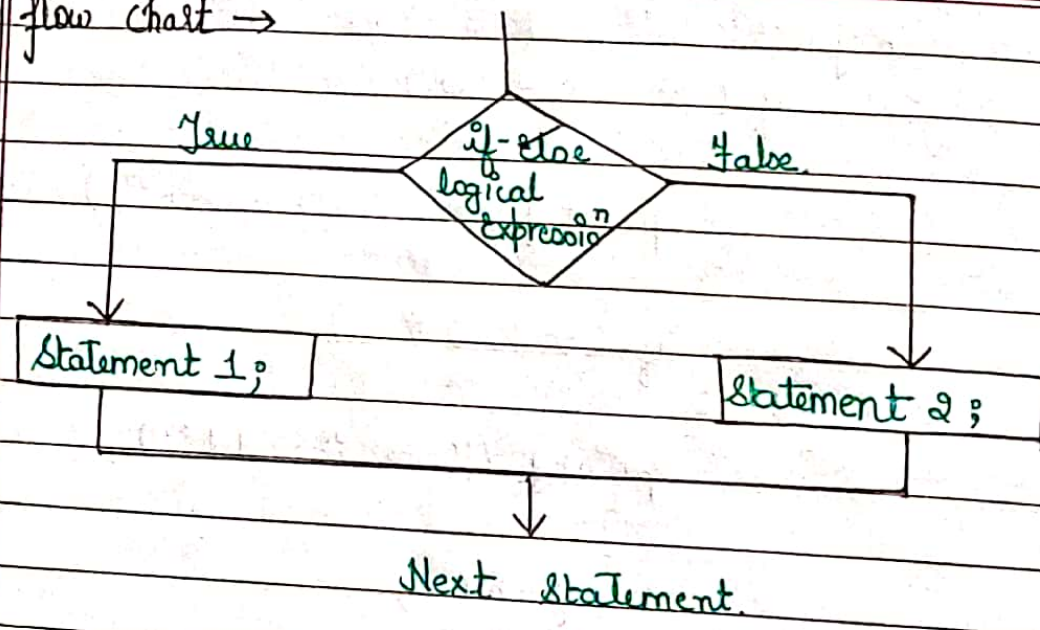 flow chart →
True
if-else
False.
logical
expressioⁿ
Statement 1;
Statement 2;
Next Statement.